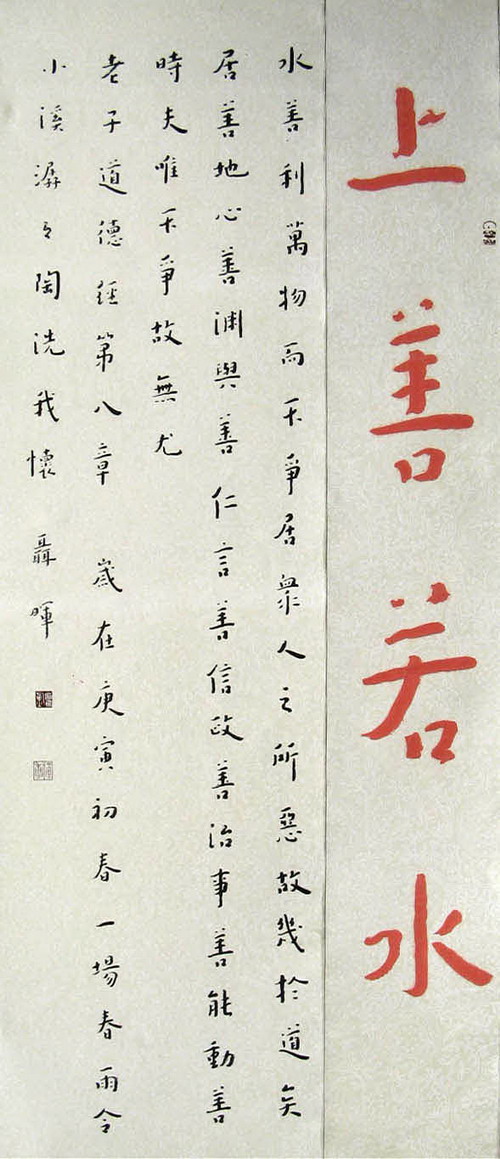 上善若水
水善利萬物而不爭居衆人之所惡故幾於道矣
居善地心善渊與善仁言善信政善治事善能動善
時夫唯不爭故無尤
老子道德經第八章 歲在庚寅初春一場春雨令
小溪潺々陶洗我懷 聶暉